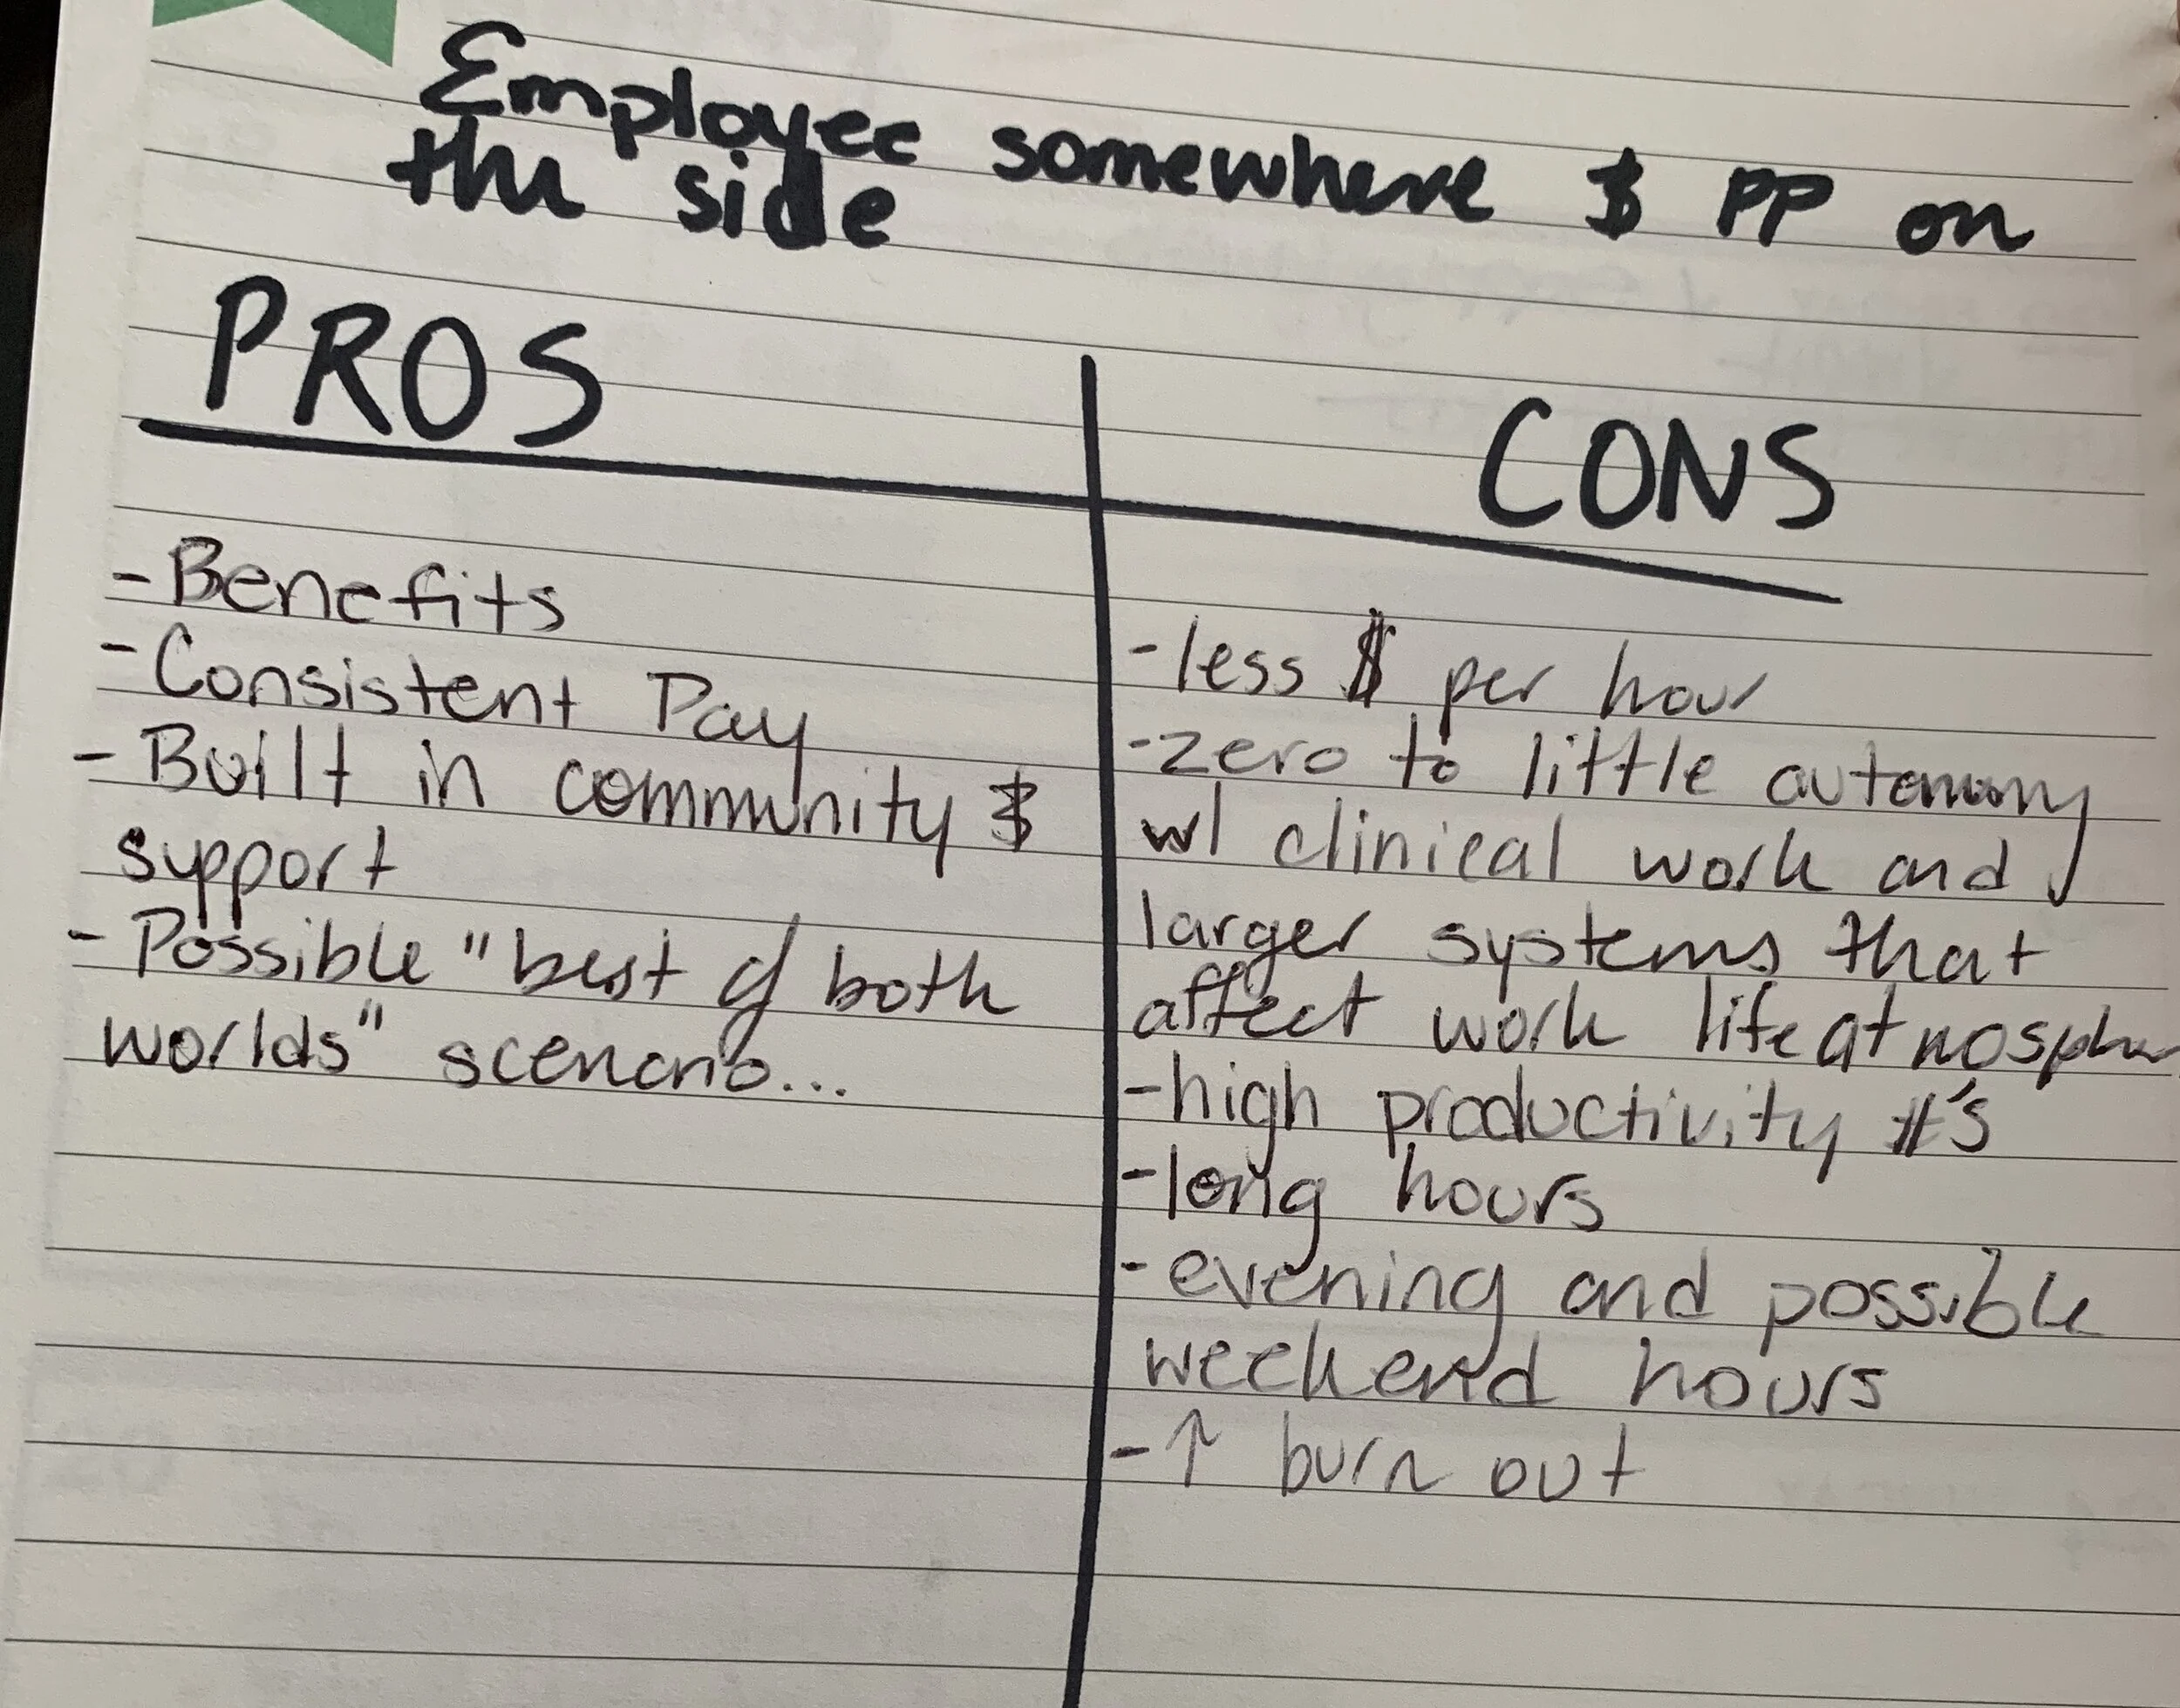 Employee somewhere & PP on
the side
PROS
CONS
- Benefits
- Consistent Pay
- Built in community &
support
- Possible "best of both
worlds" scenario...
- less $ per hour
- zero to little autonomy
w/ clinical work and
larger systems that
affect work life atmospher
- high productivity #'s
- long hours
- evening and possible
weekend hours
- ↑ burn out